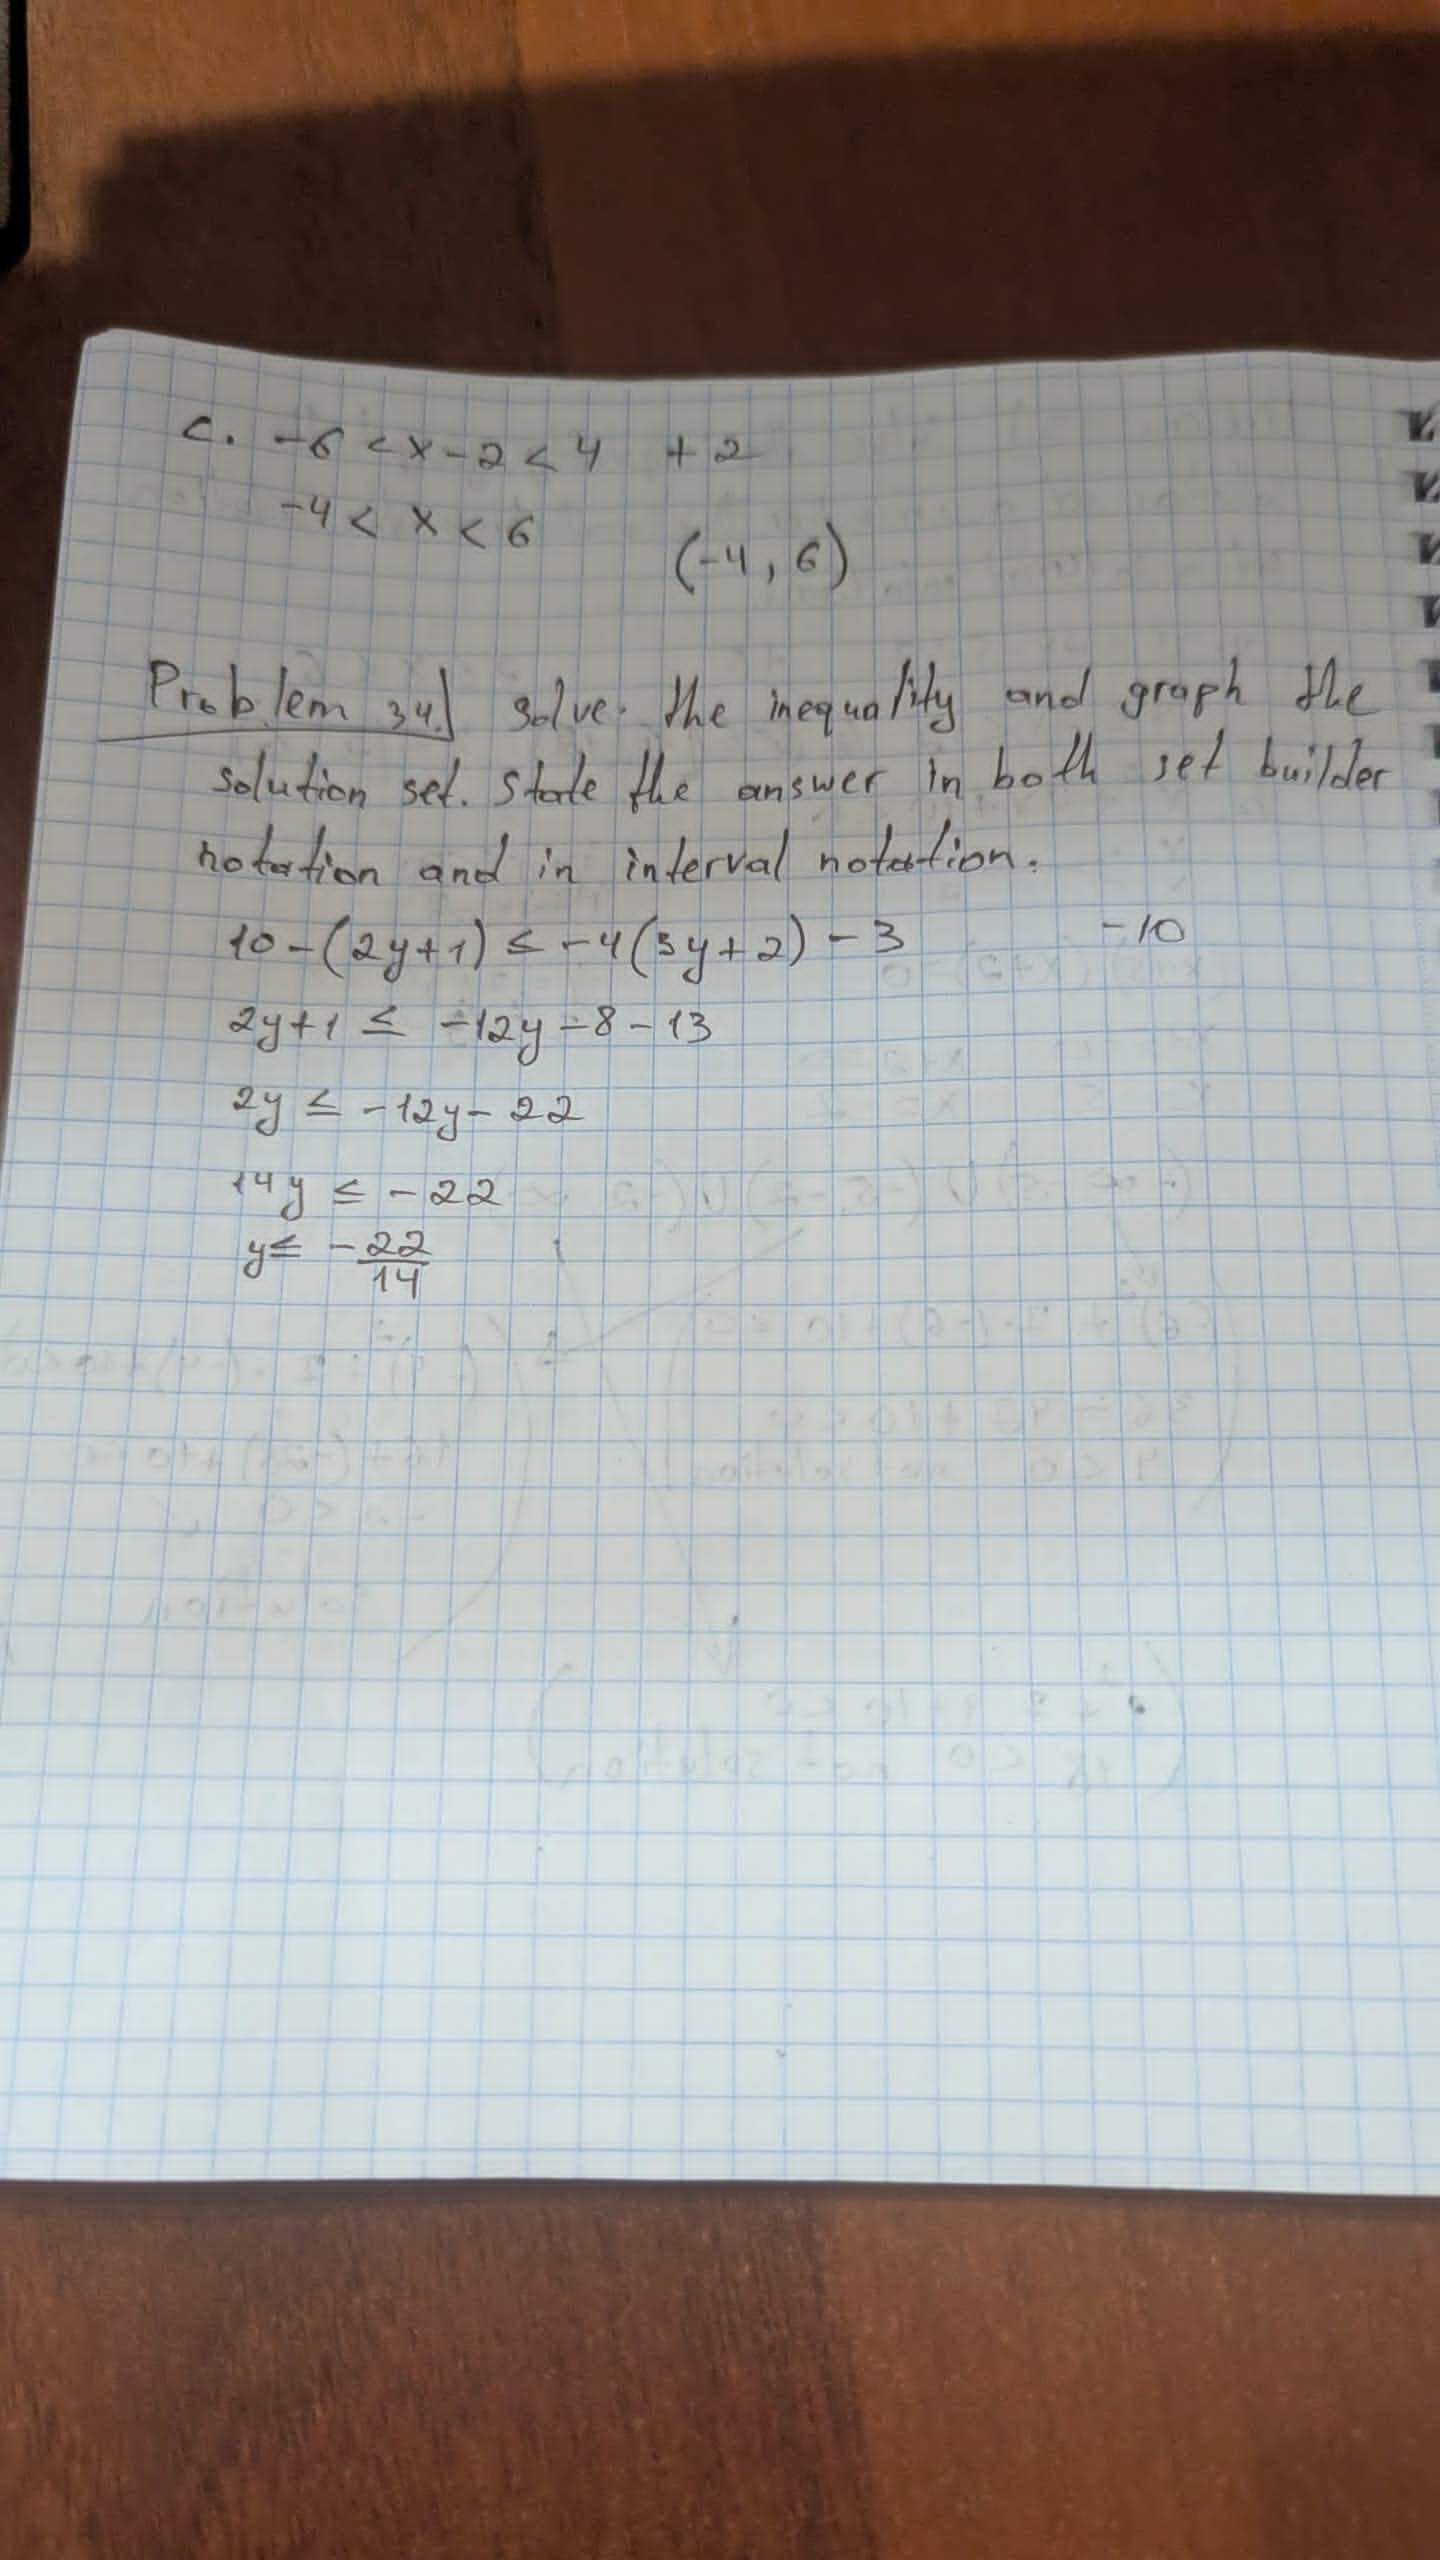 c. -6 < x - 2 < 4 + 2
-4 < x < 6
(-4, 6)
Problem 34.] solve. the inequality and graph the
solution set. State the answer in both set builder
notation and in interval notation.
10 - (2y + 1) ≤ -4(3y + 2) - 3 -10
2y + 1 ≤ -12y - 8 - 13
2y ≤ -12y - 22
14y ≤ -22
y ≤ -22/14